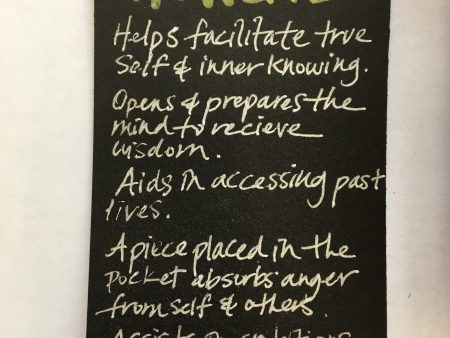 Helps facilitate true
Self & inner knowing.
Opens & prepares the
mind to recieve
wisdom.
Aids in accessing past
lives.
A piece placed in the
pocket absorbs anger
from self & others.